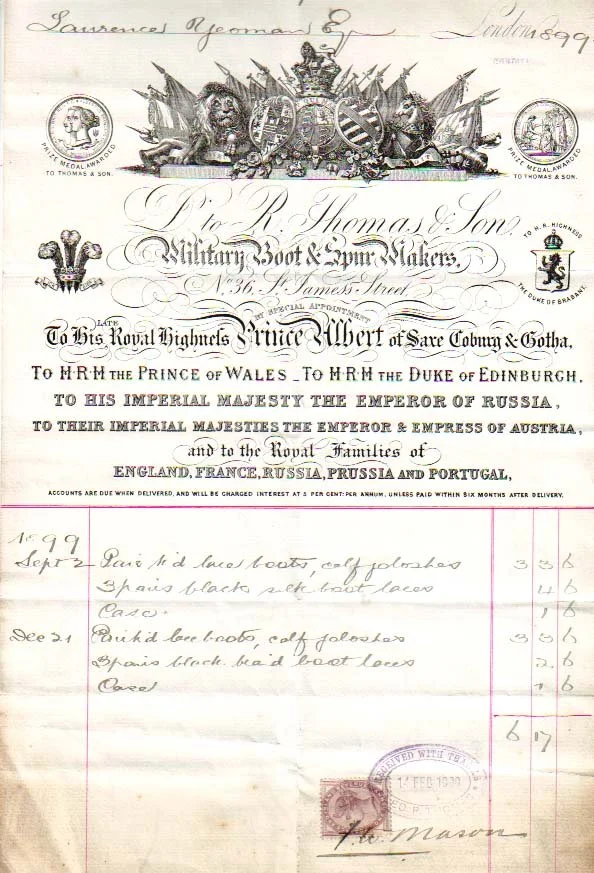 Laurence Yeoman Esq London 1899
PRIZE MEDAL AWARDED TO THOMAS & SON.
PRIZE MEDAL AWARDED TO THOMAS & SON.
Dr. to R. Thomas & Son,
Military Boot & Spur Makers,
No 36, St. James's Street
TO H.R. HIGHNESS
THE DUKE OF BRABANT.
BY SPECIAL APPOINTMENT
LATE
To His Royal Highness Prince Albert of Saxe Coburg & Gotha,
TO H.R.H THE PRINCE OF WALES _ TO H.R.H THE DUKE OF EDINBURGH,
TO HIS IMPERIAL MAJESTY THE EMPEROR OF RUSSIA,
TO THEIR IMPERIAL MAJESTIES THE EMPEROR & EMPRESS OF AUSTRIA,
and to the Royal Families of
ENGLAND, FRANCE, RUSSIA, PRUSSIA AND PORTUGAL,
ACCOUNTS ARE DUE WHEN DELIVERED, AND WILL BE CHARGED INTEREST AT 5 PER CENT: PER ANNUM, UNLESS PAID WITHIN SIX MONTHS AFTER DELIVERY.
1899
Sept 2 Pair K'd lace boots, calf goloshes 3 3 6
3 pairs black silk boot laces 4 6
Case 1 6
Dec 21 Pair k'd lace boots, calf goloshes 3 3 6
3 pairs black braid boot laces 2 6
Case 1 6
6 17
RECEIVED WITH THANKS
FEB
Mason